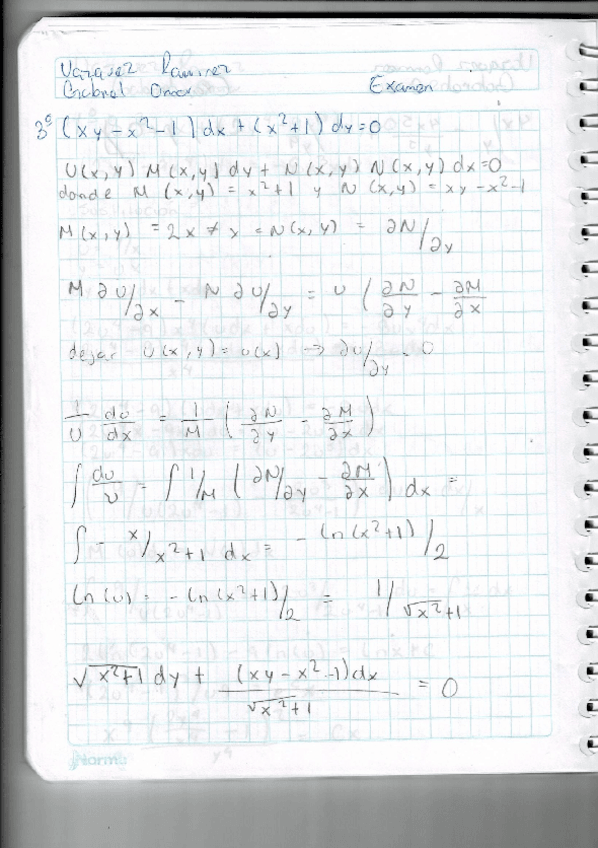 Vazquez Ramirez
Gabriel Omar Examen
3° (xy - x² - 1) dx + (x² + 1) dy = 0
U(x,y) M(x,y) dy + N(x,y) N(x,y) dx = 0
donde M(x,y) = x²+1 y N(x,y) = xy - x² - 1
M(x,y) = 2x ≠ x = N(x,y) = ∂N/∂y
M ∂U/∂x - N ∂U/∂y = U ( ∂N/∂y - ∂M/∂x
dejar U(x,y) = u(x) → ∂U/∂y = 0
1/U du/dx = 1/M ( ∂N/∂y - ∂M/∂x )
∫ du/u = ∫ 1/M ( ∂N/∂y - ∂M/∂x ) dx =
∫ - x/x²+1 dx = - ln(x²+1)/2
ln(u) = - ln(x²+1)/2 = 1/√x²+1
√x²+1 dy + (xy - x² - 1)dx/√x²+1 = 0
Norma